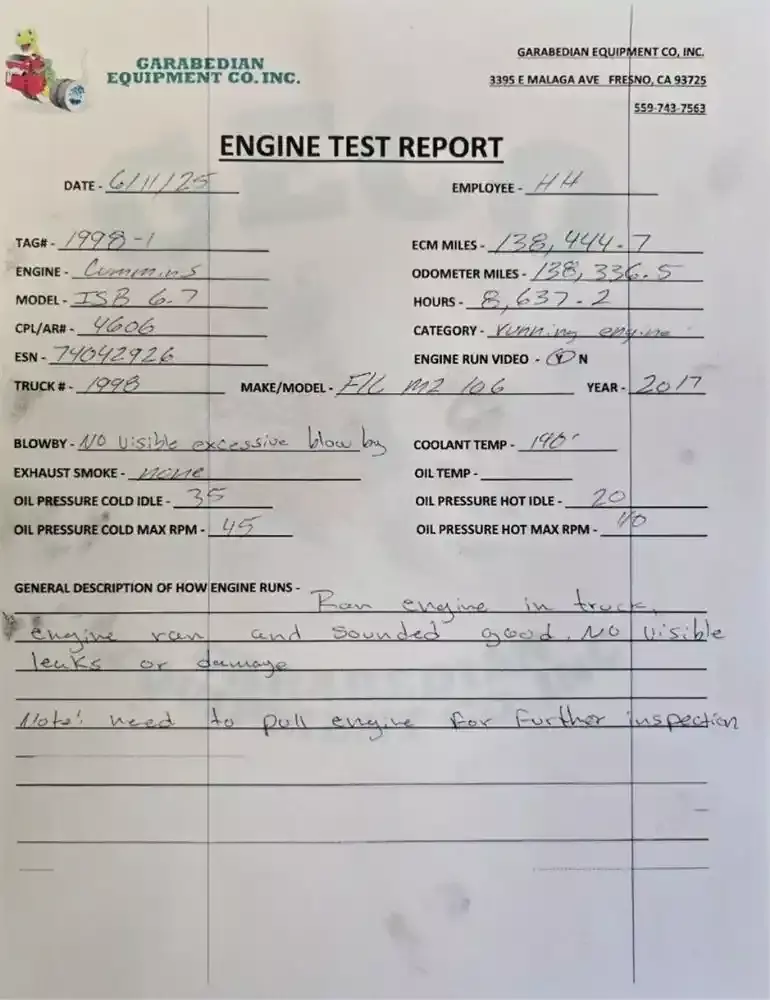 GARABEDIAN
EQUIPMENT CO. INC.
GARABEDIAN EQUIPMENT CO, INC.
3395 E MALAGA AVE FRESNO, CA 93725
559-743-7563
ENGINE TEST REPORT
DATE - 6/11/25 EMPLOYEE - HH
TAG# - 1998-1 ECM MILES - 138,444.7
ENGINE - Cummins ODOMETER MILES - 138,336.5
MODEL - ISB 6.7 HOURS - 8,637.2
CPL/AR# - 4606 CATEGORY - running engine
ESN - 74042926 ENGINE RUN VIDEO - Y N
TRUCK # - 1998 MAKE/MODEL - F/L M2 106 YEAR - 2017
BLOWBY - NO visible excessive blow by COOLANT TEMP - 190°
EXHAUST SMOKE - none OIL TEMP -
OIL PRESSURE COLD IDLE - 35 OIL PRESSURE HOT IDLE - 20
OIL PRESSURE COLD MAX RPM - 45 OIL PRESSURE HOT MAX RPM - 40
GENERAL DESCRIPTION OF HOW ENGINE RUNS - Ran engine in truck,
engine ran and sounded good. NO visible
leaks or damage
Note: need to pull engine for further inspection